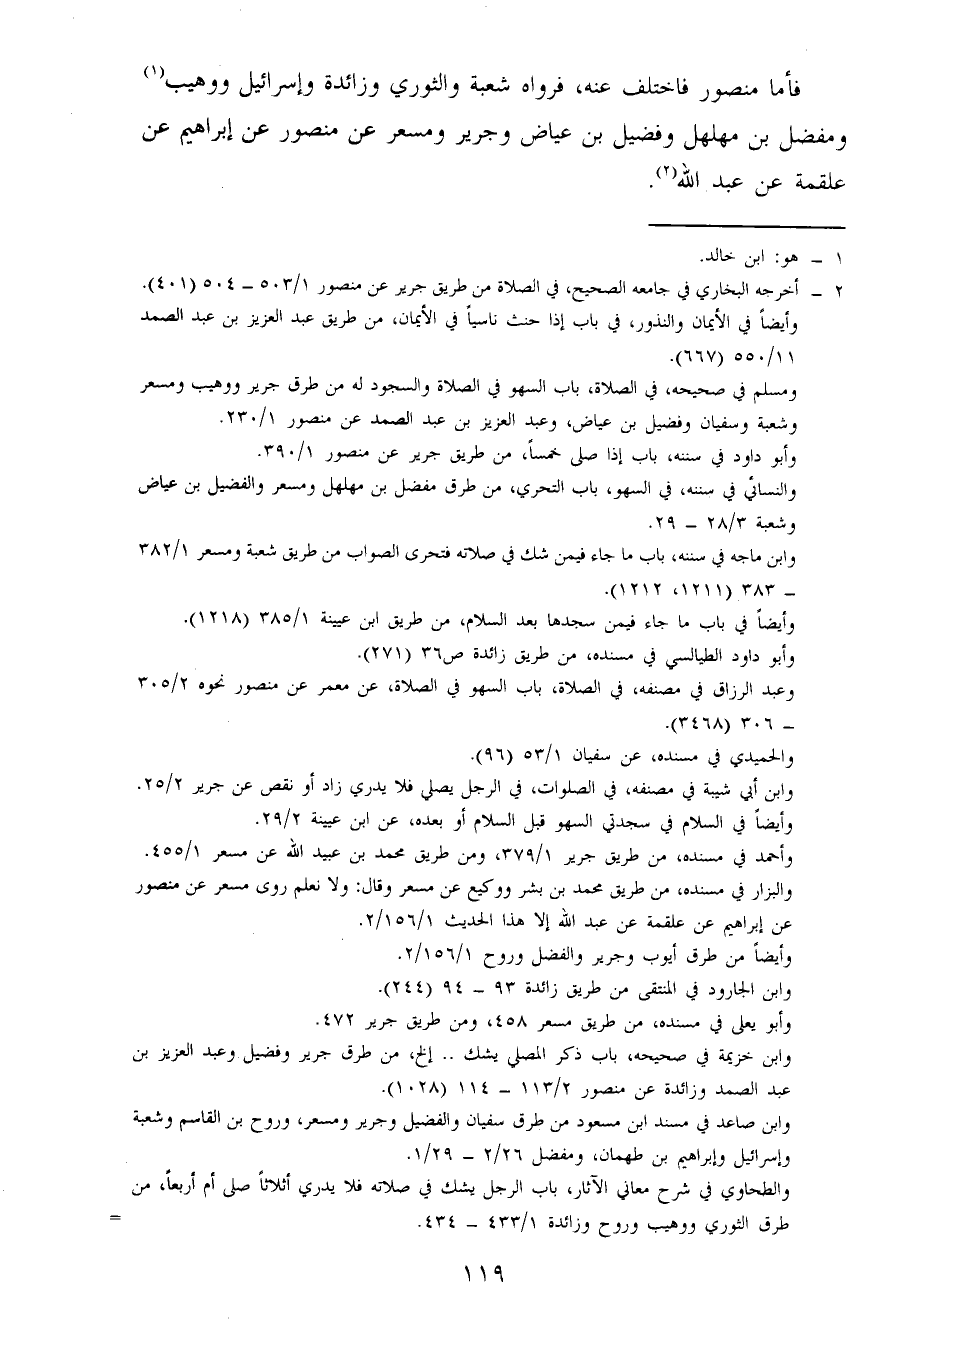 فأما منصور فاختلف عنه، فرواه شعبة والثوري وزائدة وإسرائيل ووهيب(١)
ومفضل بن مهلهل وفضيل بن عياض وجرير ومسعر عن منصور عن إبراهيم عن
علقمة عن عبد الله(٢).
١ ــ هو: ابن خالد.
٢ ــ أخرجه البخاري في جامعه الصحيح، في الصلاة من طريق جرير عن منصور ٥٠٣/١ ــ ٥٠٤ (٤٠١).
وأيضاً في الأيمان والنذور، في باب إذا حنث ناسياً في الأيمان، من طريق عبد العزيز بن عبد الصمد
٥٥٠/١١ (٦٦٧).
ومسلم في صحيحه، في الصلاة، باب السهو في الصلاة والسجود له من طرق جرير ووهيب ومسعر
وشعبة وسفيان وفضيل بن عياض، وعبد العزيز بن عبد الصمد عن منصور ٢٣٠/١.
وأبو داود في سننه، باب إذا صلى خمساً، من طريق جرير عن منصور ٣٩٠/١.
والنسائي في سننه، في السهو، باب التحري، من طرق مفضل بن مهلهل ومسعر والفضيل بن عياض
وشعبة ٢٨/٣ ــ ٢٩.
وابن ماجه في سننه، باب ما جاء فيمن شك في صلاته فتحرى الصواب من طريق شعبة ومسعر ٣٨٢/١
ــ ٣٨٣ (١٢١١، ١٢١٢).
وأيضاً في باب ما جاء فيمن سجدها بعد السلام، من طريق ابن عيينة ٣٨٥/١ (١٢١٨).
وأبو داود الطيالسي في مسنده، من طريق زائدة ص٣٦ (٢٧١).
وعبد الرزاق في مصنفه، في الصلاة، باب السهو في الصلاة، عن معمر عن منصور نحوه ٣٠٥/٢
ــ ٣٠٦ (٣٤٦٨).
والحميدي في مسنده، عن سفيان ٥٣/١ (٩٦).
وابن أبي شيبة في مصنفه، في الصلوات، في الرجل يصلي فلا يدري زاد أو نقص عن جرير ٢٥/٢.
وأيضاً في السلام في سجدتي السهو قبل السلام أو بعده، عن ابن عيينة ٢٩/٢.
وأحمد في مسنده، من طريق جرير ٣٧٩/١، ومن طريق محمد بن عبيد الله عن مسعر ٤٥٥/١.
والبزار في مسنده، من طريق محمد بن بشر ووكيع عن مسعر وقال: ولا نعلم روى مسعر عن منصور
عن إبراهيم عن علقمة عن عبد الله إلا هذا الحديث ٢/١٥٦/١.
وأيضاً من طرق أيوب وجرير والفضل وروح ٢/١٥٦/١.
وابن الجارود في المنتقى من طريق زائدة ٩٣ ــ ٩٤ (٢٤٤).
وأبو يعلى في مسنده، من طريق مسعر ٤٥٨، ومن طريق جرير ٤٧٢.
وابن خزيمة في صحيحه، باب ذكر المصلي يشك .. إلخ، من طرق جرير وفضيل وعبد العزيز بن
عبد الصمد وزائدة عن منصور ١١٣/٢ ــ ١١٤ (١٠٢٨).
وابن صاعد في مسند ابن مسعود من طرق سفيان والفضيل وجرير ومسعر، وروح بن القاسم وشعبة
وإسرائيل وإبراهيم بن طهمان، ومفضل ٢/٢٦ ــ ١/٢٩.
والطحاوي في شرح معاني الآثار، باب الرجل يشك في صلاته فلا يدري أثلاثاً صلى أم أربعاً، من
طرق الثوري ووهيب وروح وزائدة ٤٣٣/١ ــ ٤٣٤. =
١١٩